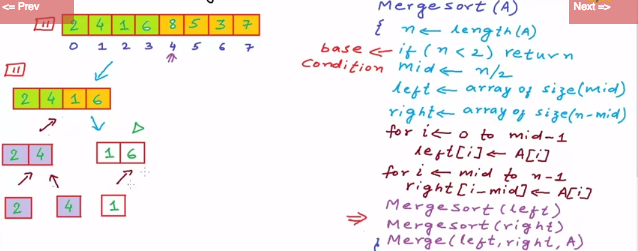 <= Prev
Next =>
2 4 1 6 8 5 3 7
0 1 2 3 4 5 6 7
2 4 1 6
2 4
1 6
2
4
1
Mergesort (A)
{ n ← length(A)
base ← if (n < 2) return
condition mid ← n/2
left ← array of size(mid)
right ← array of size(n-mid)
for i ← 0 to mid-1
left[i] ← A[i]
for i ← mid to n-1
right[i-mid] ← A[i]
Mergesort (left)
⇒ Mergesort (right)
} Merge (left, right, A)